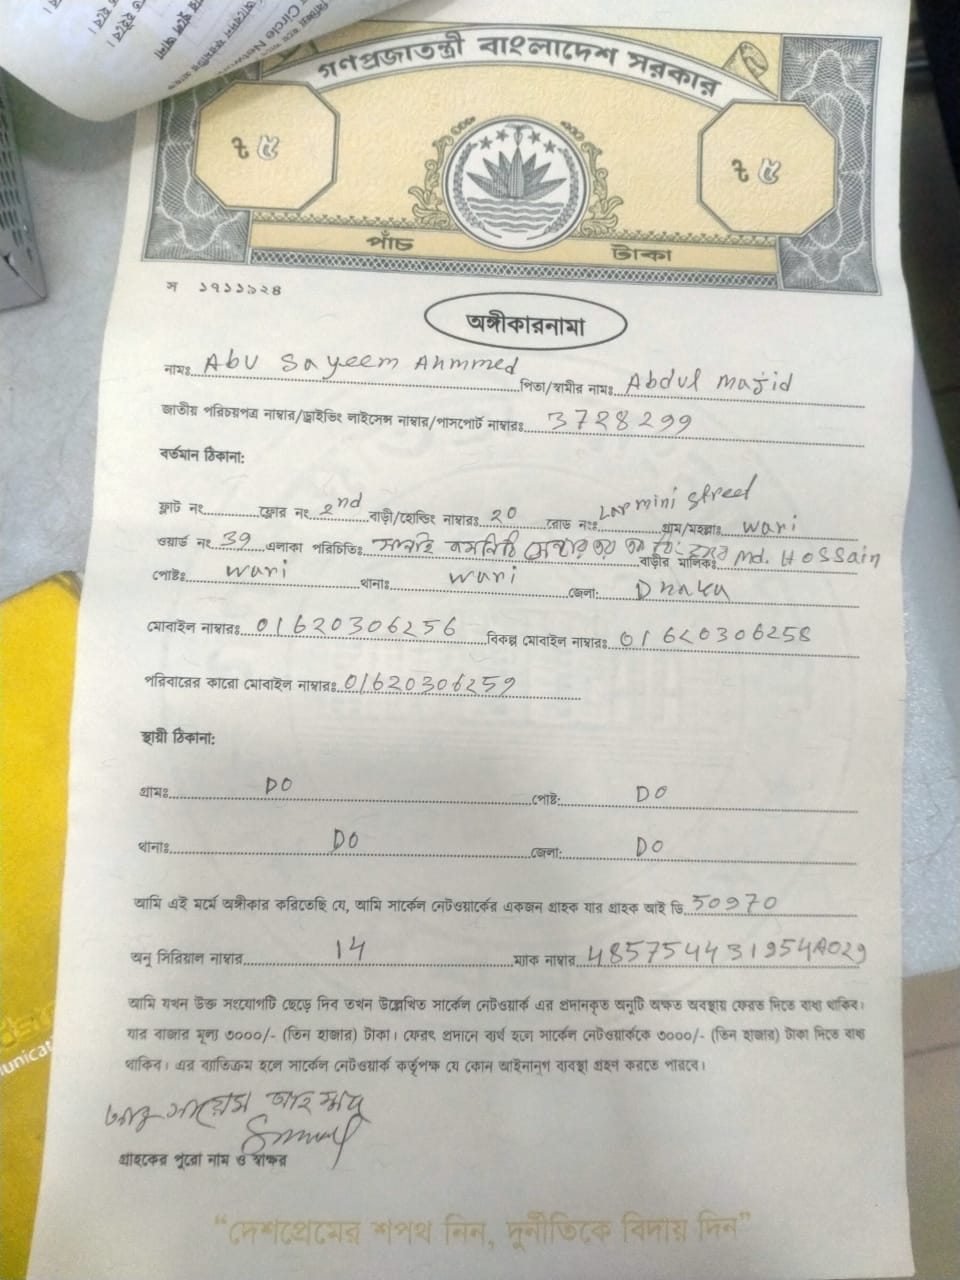 গণপ্রজাতন্ত্রী বাংলাদেশ সরকার
৳ ৫ ৳ ৫
পাঁচ টাকা
স ১৭১১৯২৪
অঙ্গীকারনামা
নামঃ Abu Sayeem Ahmmed পিতা/স্বামীর নামঃ Abdul Majid
জাতীয় পরিচয়পত্র নাম্বার/ড্রাইভিং লাইসেন্স নাম্বার/পাসপোর্ট নাম্বারঃ 3728299
বর্তমান ঠিকানা:
ফ্লাট নং ফ্লোর নং 2nd বাড়ী/হোল্ডিং নাম্বারঃ 20 রোড নংঃ Larmini Street গ্রাম/মহল্লাঃ Wari
ওয়ার্ড নং 39 এলাকা পরিচিতিঃ বাড়ীর মালিকঃ Md. Hossain
পোষ্টঃ Wari থানাঃ Wari জেলা: Dhaka
মোবাইল নাম্বারঃ 01620306256 বিকল্প মোবাইল নাম্বারঃ 01620306258
পরিবারের কারো মোবাইল নাম্বারঃ 01620306259
স্থায়ী ঠিকানা:
গ্রামঃ DO পোষ্ট: DO
থানাঃ DO জেলা: DO
আমি এই মর্মে অঙ্গীকার করিতেছি যে, আমি সার্কেল নেটওয়ার্কের একজন গ্রাহক যার গ্রাহক আই ডি 50970
অনু সিরিয়াল নাম্বার 14 ম্যাক নাম্বার 485754431954A029
আমি যখন উক্ত সংযোগটি ছেড়ে দিব তখন উল্লেখিত সার্কেল নেটওয়ার্ক এর প্রদানকৃত অনুটি অক্ষত অবস্থায় ফেরত দিতে বাধ্য থাকিব।
যার বাজার মূল্য ৩০০০/- (তিন হাজার) টাকা। ফেরৎ প্রদানে ব্যর্থ হলে সার্কেল নেটওয়ার্ককে ৩০০০/- (তিন হাজার) টাকা দিতে বাধ্য
থাকিব। এর ব্যতিক্রম হলে সার্কেল নেটওয়ার্ক কর্তৃপক্ষ যে কোন আইনানুগ ব্যবস্থা গ্রহন করতে পারবে।
গ্রাহকের পুরো নাম ও স্বাক্ষর
“দেশপ্রেমের শপথ নিন, দুর্নীতিকে বিদায় দিন”